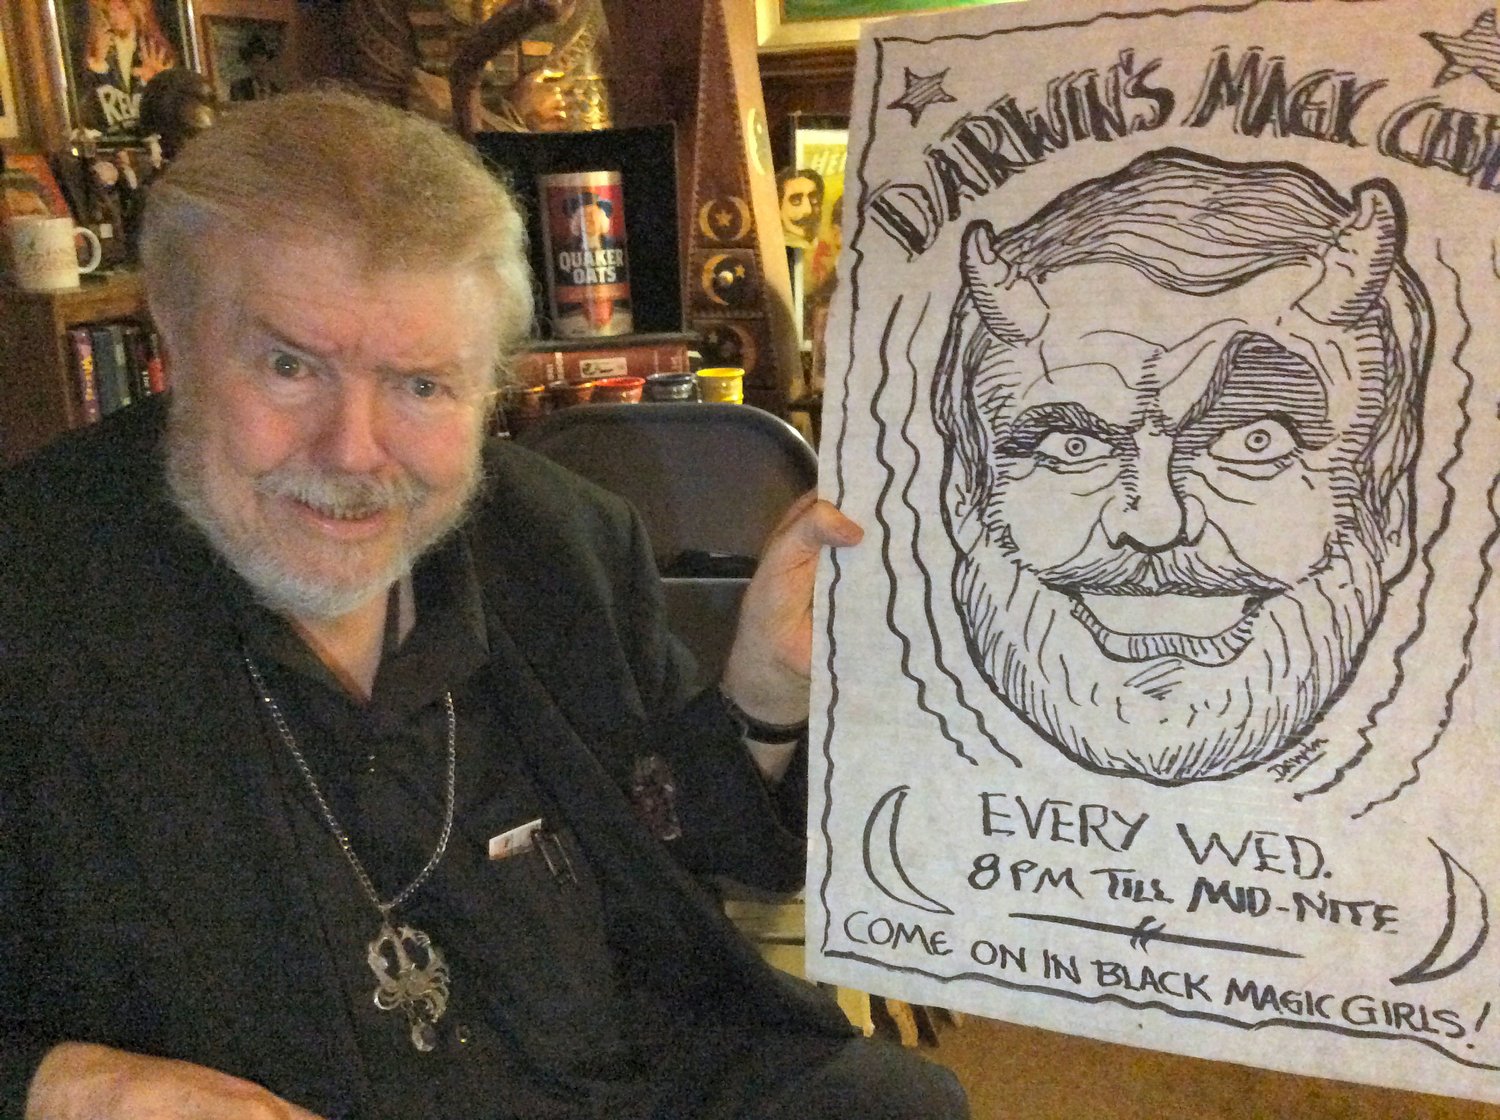 DARWIN'S MAGIC
Darwin
EVERY WED.
8 PM TILL MID-NITE
COME ON IN BLACK MAGIC GIRLS!
QUAKER
OATS